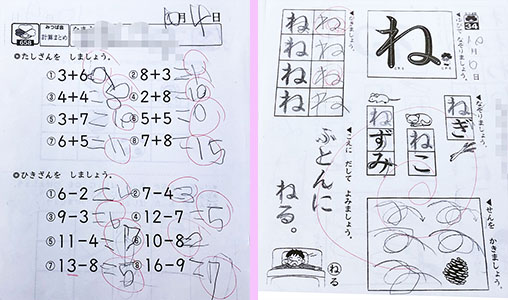 10月4日
みつば会
計算まとめ
なまえ
◎たしざんを しましょう。
①3+6=9 ②8+3=
③4+4= ④2+8=10
⑤3+7= ⑥5+5=
⑦6+5=11 ⑧7+8=15
◎ひきざんを しましょう。
①6−2= ②7−4=3
③9−3= ④12−7=5
⑤11−4= ⑥10−8=2
⑦13−8= ⑧16−9=7
34
ね
なぞりましょう。
ねぎ
ねこ
ねずみ
かきましょう。
ね ね
ね ね
ね ね
ね ね
こえに だして よみましょう。
ふとんに
ねる。
ねる
せんを かきましょう。